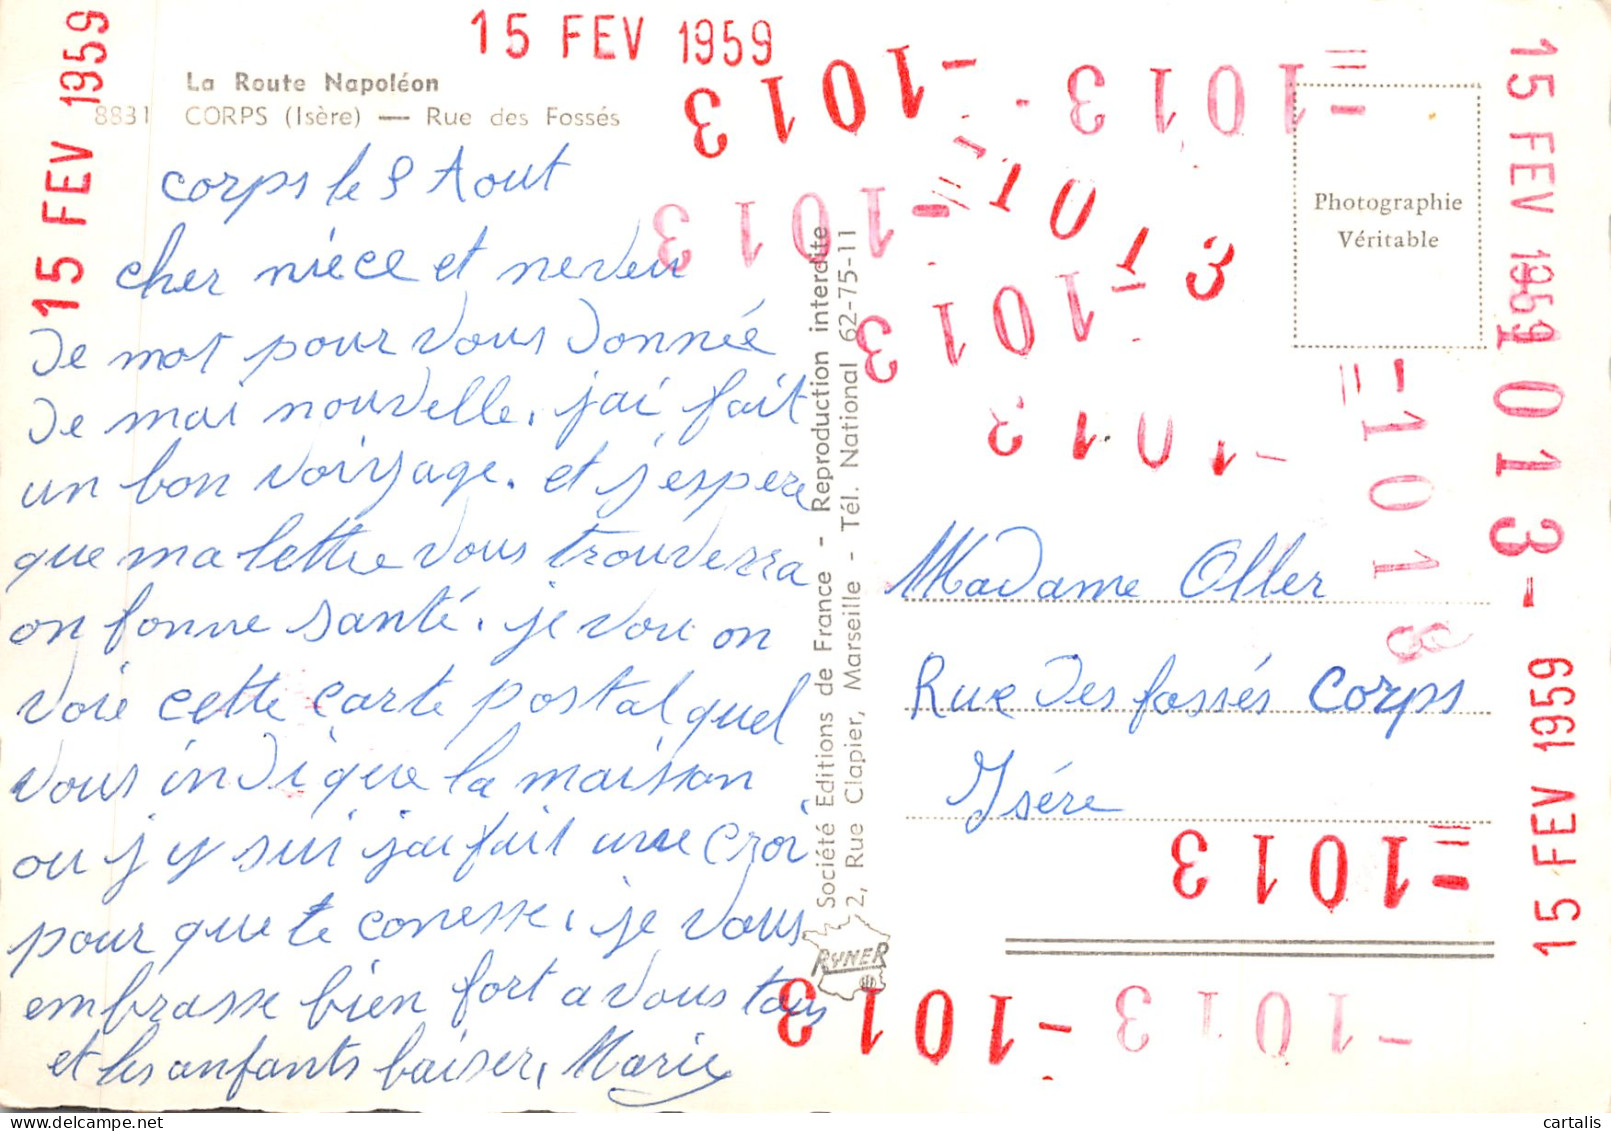 15 FEV 1959
15 FEV 1959
15 FEV 1959
15 FEV 1959
La Route Napoléon
8831 CORPS (Isère) — Rue des Fossés
corps le 9 Aout
cher niece et neveu
De mot pour vous donnée
De mai nouvelle, jai fait
un bon voiyage. et j'espere
que ma lettre vous trouverra
on bonne santé. je voù on
voie cette carte postal quel
vous indique la maisson
ou j y sui jai fait une croi
pour que te conesse, je vous
embrasse bien fort a vous tous
et les anfants baiser, Marie
Société Editions de France - Reproduction interdite
2, Rue Clapier, Marseille - Tél. National 62-75-11
RYNER
Photographie
Véritable
Madame Oller
Rue Des fossés Corps
Isére
-1013
-1013
-1013
-1013
-1013
-1013
-1013
-1013
-1013
-1013
-1013
1013-